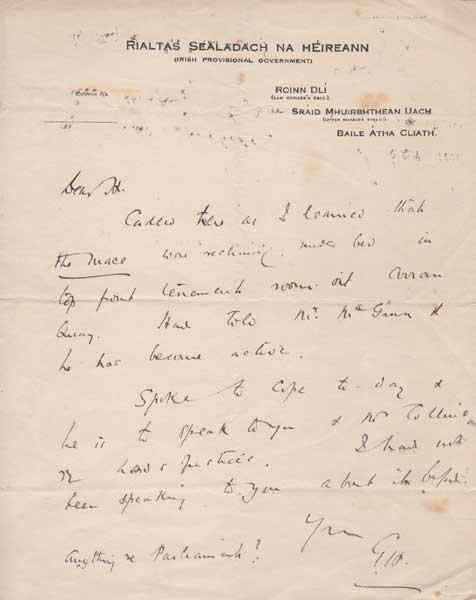 RIALTAS SEALADACH NA HÉIREANN
(IRISH PROVISIONAL GOVERNMENT)
ROINN DLÍ
(LAW OFFICER'S DEPT.)
SRÁID MHUIRBHTHEAN UACH
(UPPER MERRION STREET).
BAILE ÁTHA CLIATH.
Dear H.
Called here as I learned that
the Mace was reclining under bed in
top front tenement room at
Quay. Had told Mr. McGann &
he has become active.
Spoke to Cope to-day &
he is to speak to you & Mr Collins
re I had not
been speaking to you about it before.
Yrs
Anything re Parliament?